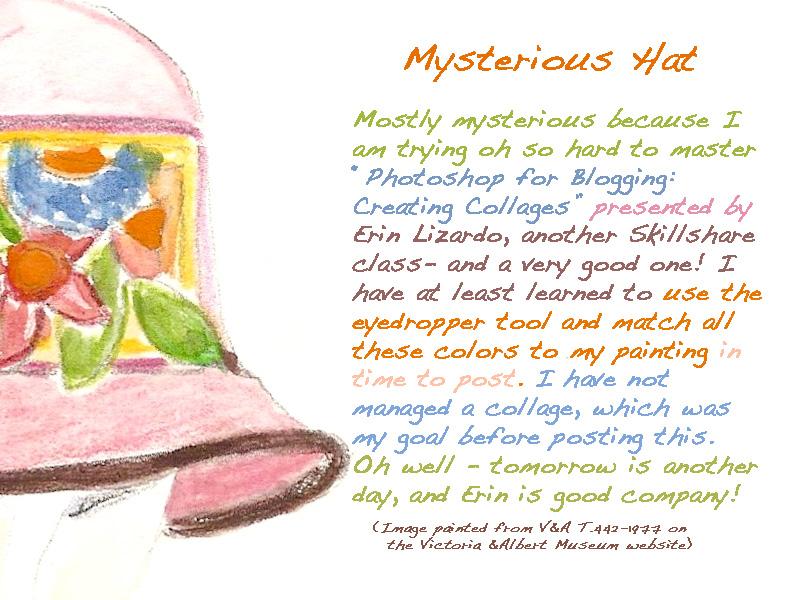 Mysterious Hat
Mostly mysterious because I
am trying oh so hard to master
"Photoshop for Blogging:
Creating Collages" presented by
Erin Lizardo, another Skillshare
class- and a very good one! I
have at least learned to use the
eyedropper tool and match all
these colors to my painting in
time to post. I have not
managed a collage, which was
my goal before posting this.
Oh well - tomorrow is another
day, and Erin is good company!
(Image painted from V&A T.442-1977 on
the Victoria &Albert Museum website)